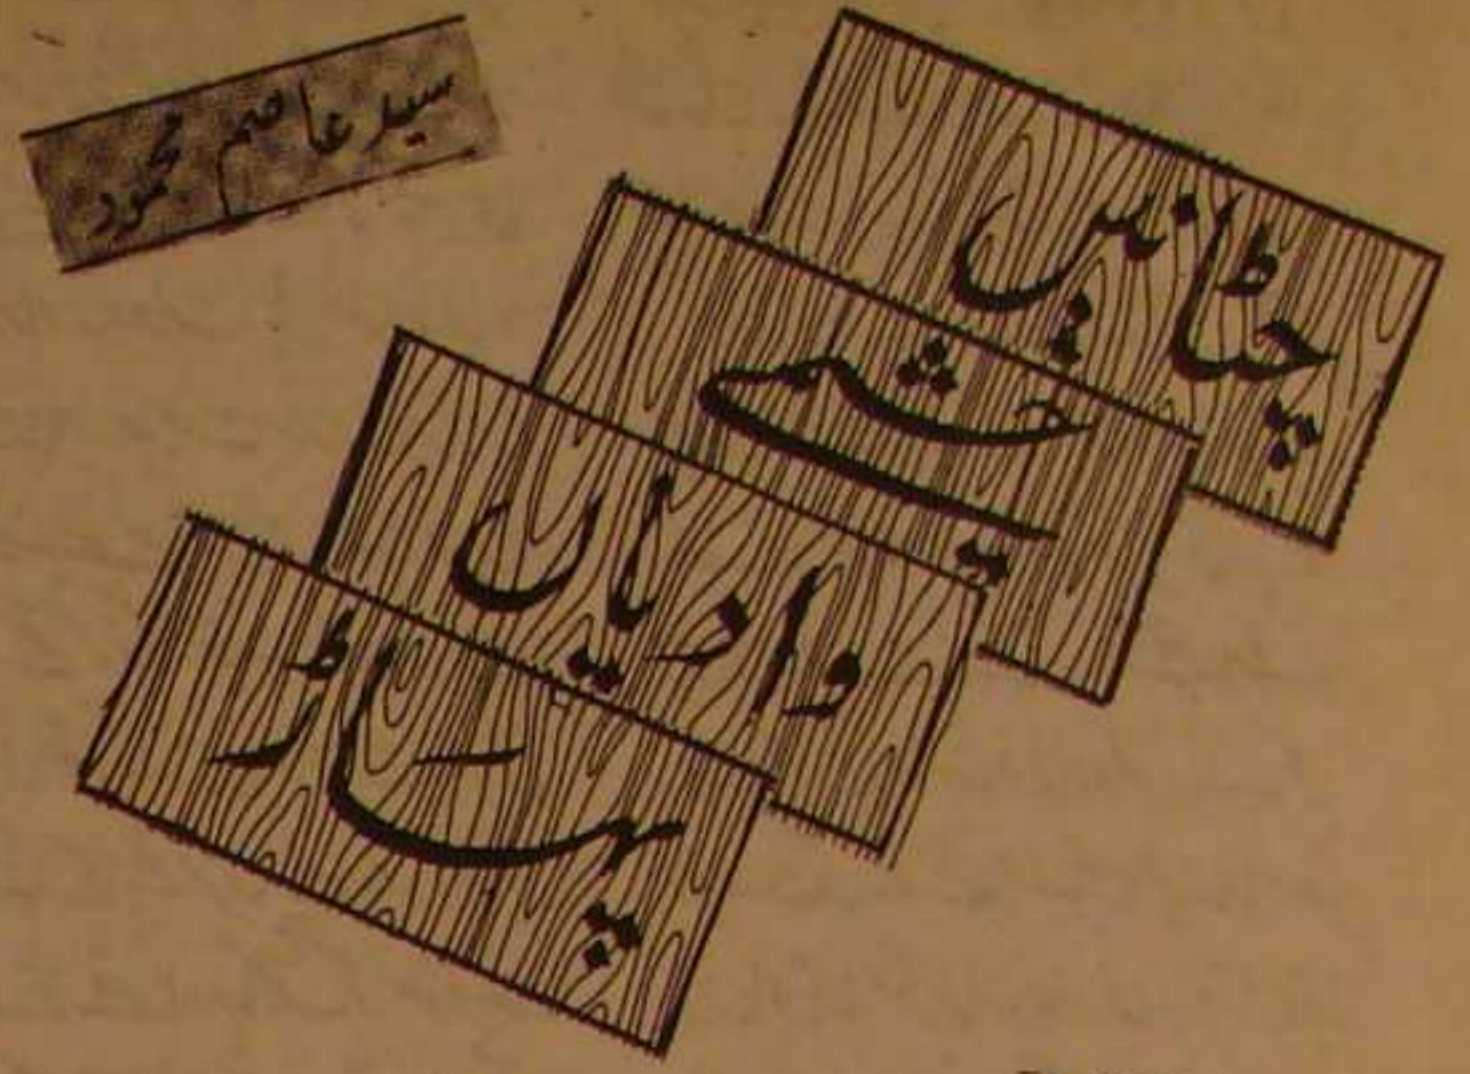 سید عاصم محمود
چٹانیں
چشمے
وادیاں
پہاڑ